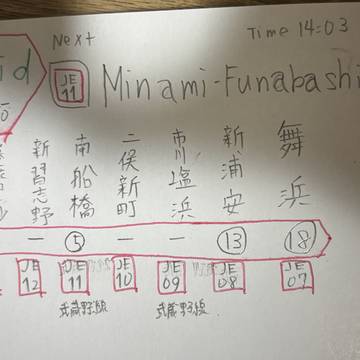 Next
Time 14:03
id
JE
11
Minami-Funabashi
新習志野
南船橋
二俣新町
市川塩浜
新浦安
舞浜
— ⑤ — — ⑬ ⑱
JE
12
JE
11
JE
10
JE
09
JE
08
JE
07
武蔵野線
武蔵野線